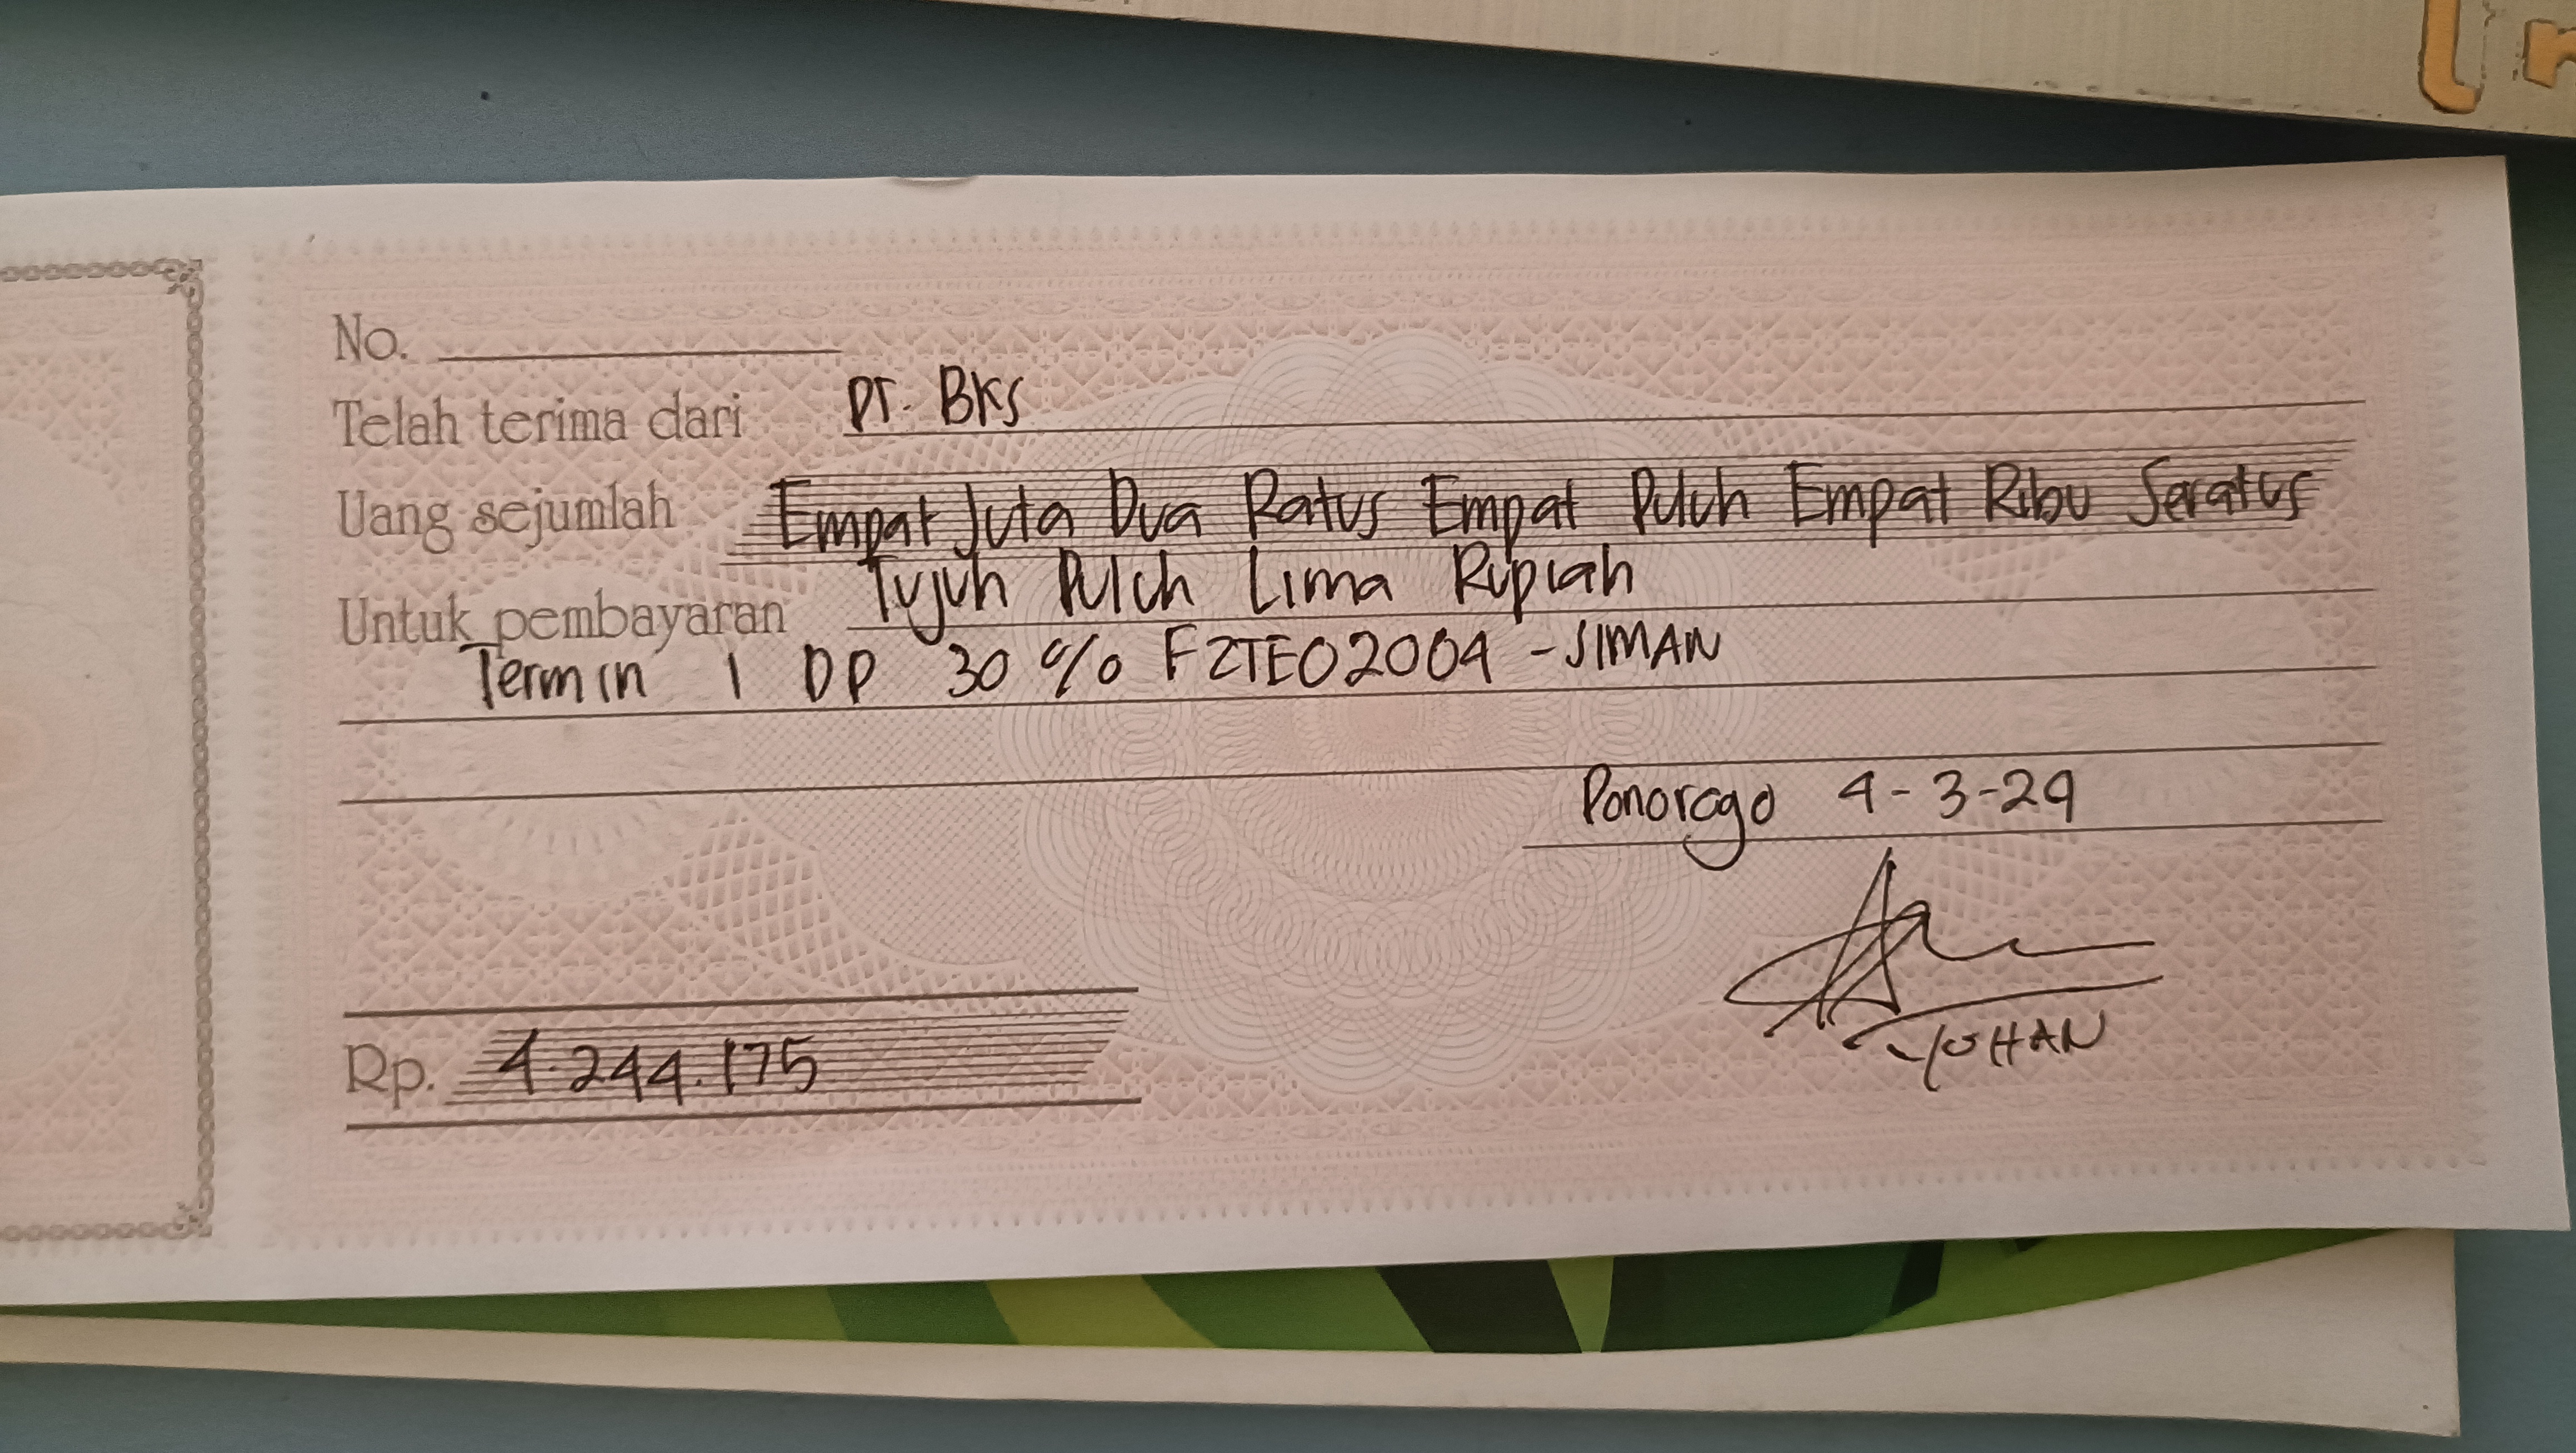 No.
Telah terima dari PT. BKS
Uang sejumlah Empat Juta Dua Ratus Empat Puluh Empat Ribu Seratus
Tujuh Puluh Lima Rupiah
Untuk pembayaran
Termin 1 DP 30 % FZTEO2004 - SIMAN
Ponorogo 4-3-24
YOHAN
Rp. 4.244.175